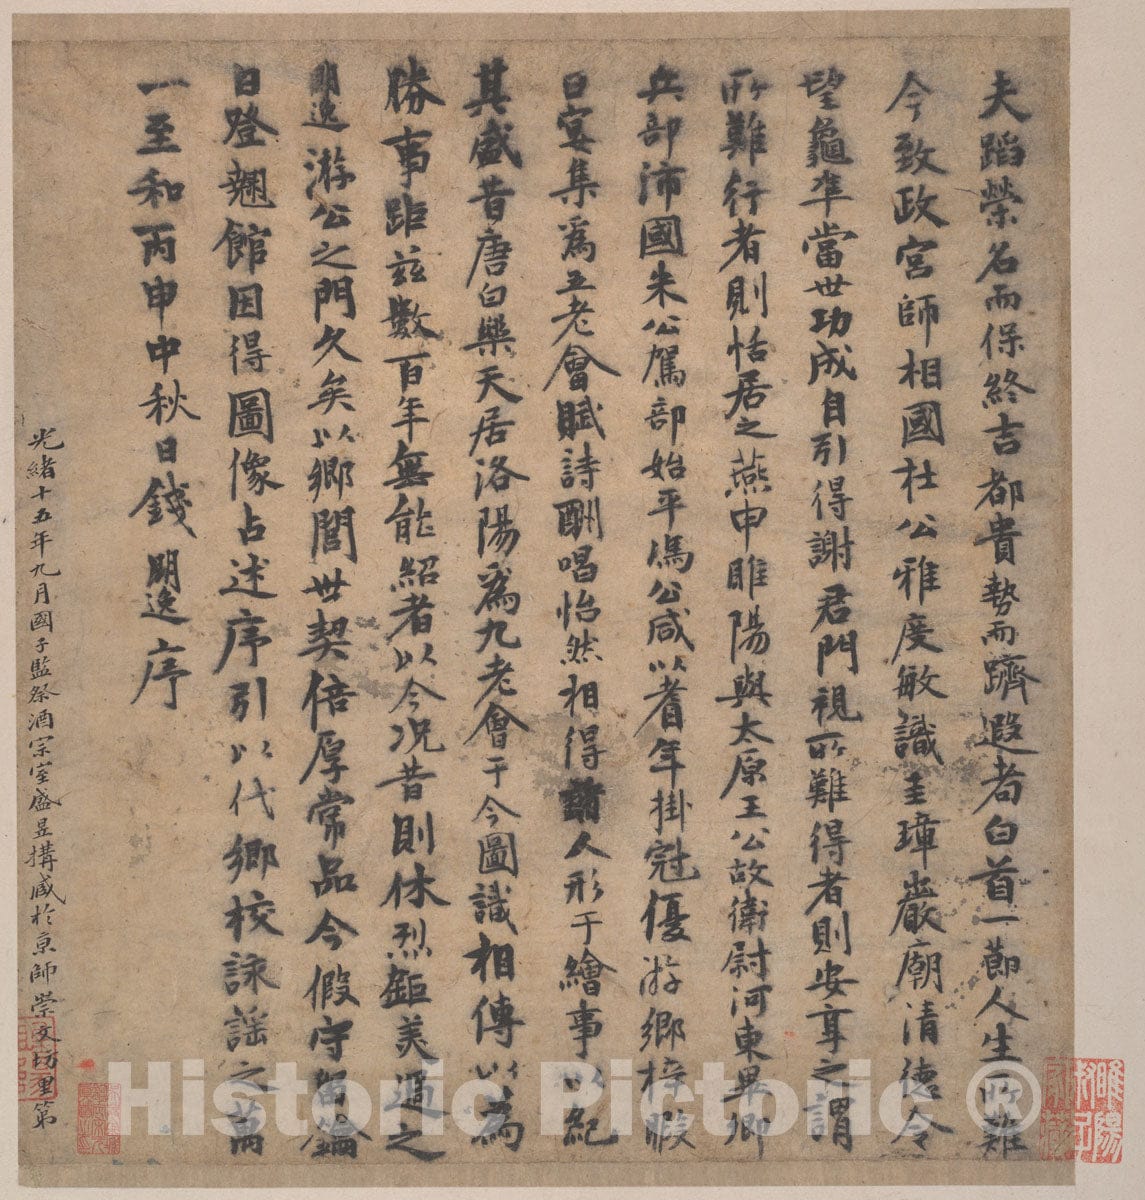 夫蹈榮名而保終吉都貴勢而躋遐耇白首一節人生所難
今致政宮師相國杜公雅度敏識圭璋巖廟清德令
望龜準當世功成自引得謝君門視所難得者則安享之謂
所難行者則恬居之燕申睢陽與太原王公故衛尉河東畢卿
兵部沛國朱公駕部始平馮公咸以耆年掛冠優游鄉梓暇
日宴集為五老會賦詩酬唱怡然相得人形于繪事以紀
其盛昔唐白樂天居洛陽為九老會于今圖識相傳以為
勝事距茲數百年無能紹者以今況昔則休烈鉅美過之
明逸游公之門久矣以鄉閭世契倍厚常品今假守留鑰
日登翹館因得圖像占述序引以代鄉校詠謠之萬
一至和丙申中秋日錢明逸序
光緒十五年九月國子監祭酒宗室盛昱搆藏於京師崇文坊里第
Historic Pictoric ®